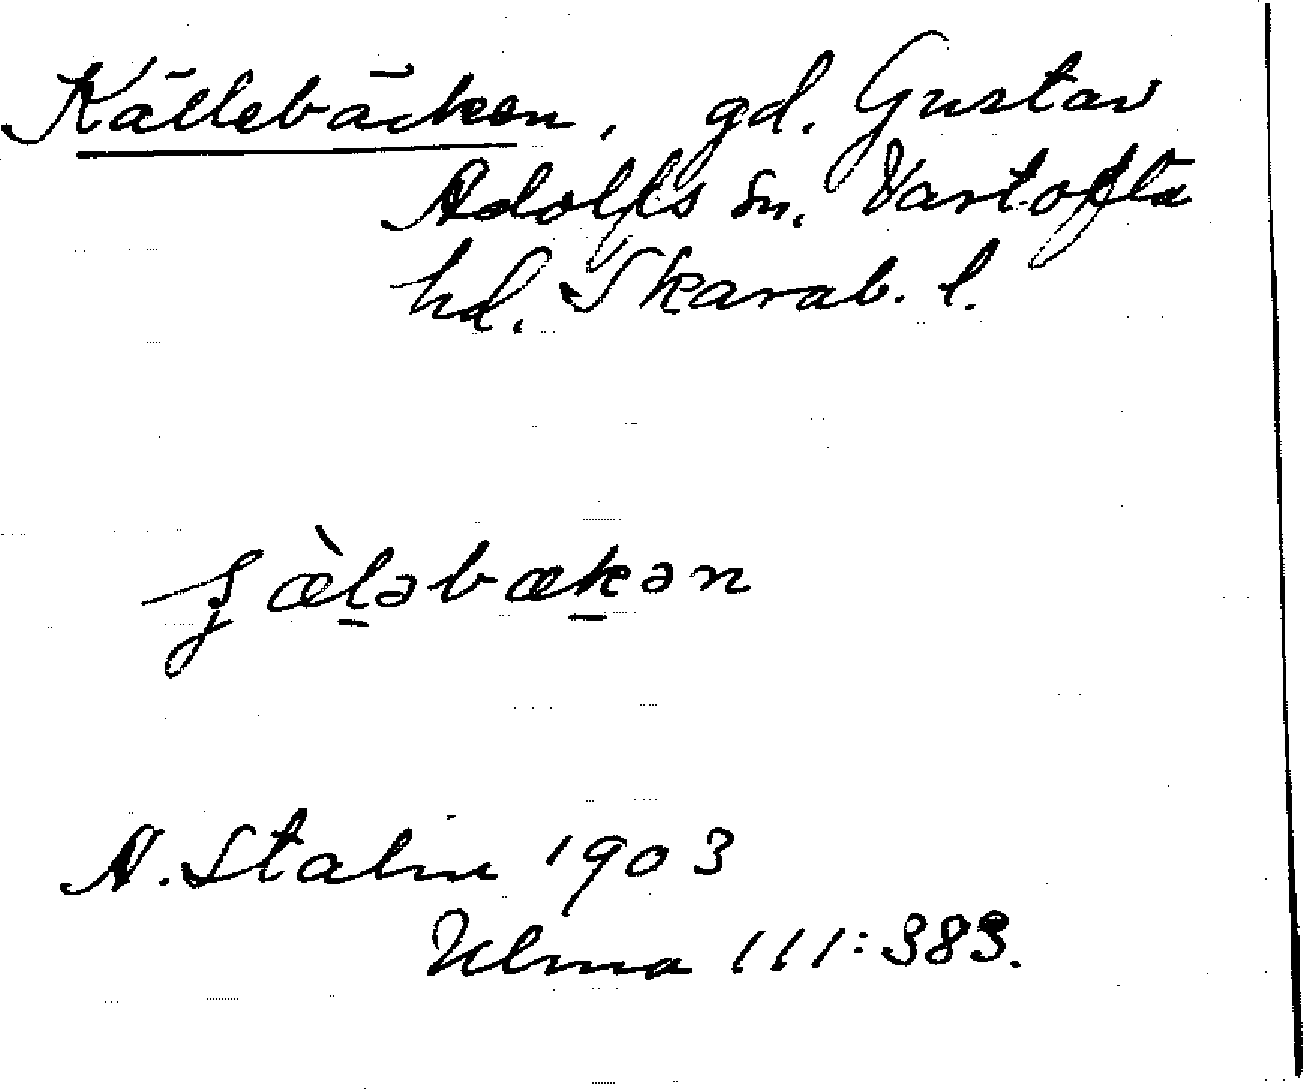 Källebäcken, gd. Gustav
Adolfs sn. Vartofta
hd. Skarab. l.
A. Stalin 1903
Ulma 111:383.